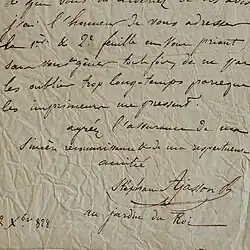 j'ai l'honneur de vous adresser
la 1re & 2e feuille en vous priant
sans vous gêner toutefois de ne pas
les oublier trop longtemps parceque
les imprimeurs me pressent.
agréez l'assurance de ma
sincère reconnaissance & de ma respectueuse
amitié
Stéphane Ajasson
au jardin du Roi
2 Xbre 1828